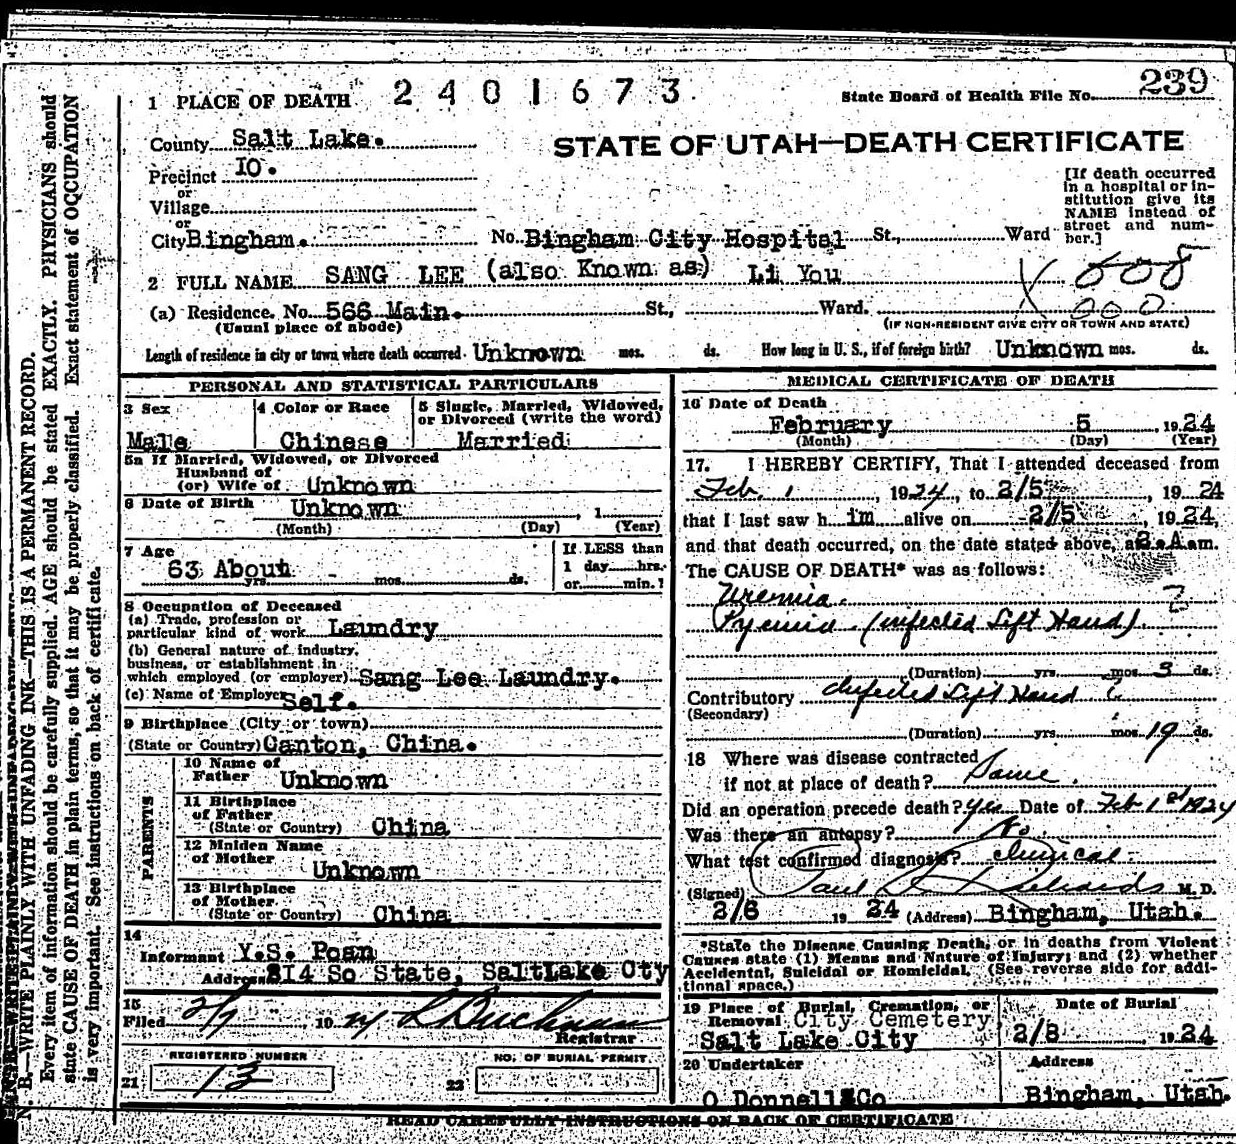 1 PLACE OF DEATH 2401673 State Board of Health File No. 239
County Salt Lake.
STATE OF UTAH—DEATH CERTIFICATE
Precinct 10.
or
Village
or
City Bingham. No. Bingham City Hospital St., Ward
[If death occurred in a hospital or institution give its NAME instead of street and number.]
2 FULL NAME SANG LEE (also Known as) Li You
(a) Residence. No. 566 Main. St., Ward.
(Usual place of abode) (IF NON-RESIDENT GIVE CITY OR TOWN AND STATE)
Length of residence in city or town where death occurred Unknown mos. ds. How long in U. S., if of foreign birth? Unknown mos. ds.
PERSONAL AND STATISTICAL PARTICULARS
3 Sex
Male
4 Color or Race
Chinese
5 Single, Married, Widowed,
or Divorced (write the word)
Married
5a If Married, Widowed, or Divorced
Husband of
(or) Wife of Unknown
6 Date of Birth Unknown , 1
(Month) (Day) (Year)
7 Age
63 About
yrs. mos. ds.
If LESS than
1 day hrs.
or min.?
8 Occupation of Deceased
(a) Trade, profession or
particular kind of work Laundry
(b) General nature of industry,
business, or establishment in
which employed (or employer) Sang Lee Laundry.
(c) Name of Employer Self.
9 Birthplace (City or town)
(State or Country) Canton, China.
PARENTS
10 Name of
Father Unknown
11 Birthplace
of Father
(State or Country) China
12 Maiden Name
of Mother
Unknown
13 Birthplace
of Mother
(State or Country) China
14
Informant Y.S. Poan
Address 814 So State, SaltLake Cty
15
Filed 2/7 19 24 L Buchman
Registrar
REGISTERED NUMBER
21 13
NO. OF BURIAL PERMIT
22
MEDICAL CERTIFICATE OF DEATH
16 Date of Death
February 5 , 1924
(Month) (Day) (Year)
17. I HEREBY CERTIFY, That I attended deceased from
Feb. 1 , 1924, to 2/5 , 1924
that I last saw him alive on 2/5 , 1924,
and that death occurred, on the date stated above, at A.m.
The CAUSE OF DEATH* was as follows:
Uremia.
Pyemia (infected Left Hand)
(Duration) yrs. mos. 3 ds.
Contributory Infected Left Hand
(Secondary)
(Duration) yrs. mos. 19 ds.
18 Where was disease contracted
if not at place of death? Same.
Did an operation precede death? Yes Date of Feb 1st 1924
Was there an autopsy? No
What test confirmed diagnosis? Clinical
(Signed) Paul Richards M. D.
2/6 1924 (Address) Bingham, Utah.
*State the Disease Causing Death, or in deaths from Violent
Causes state (1) Means and Nature of Injury; and (2) whether
Accidental, Suicidal or Homicidal. (See reverse side for addi-
tional space.)
19 Place of Burial, Cremation, or
Removal City Cemetery
Salt Lake City
Date of Burial
2/8 1924
20 Undertaker
O Donnell &Co
Address
Bingham, Utah.
READ CAREFULLY INSTRUCTIONS ON BACK OF CERTIFICATE
N. B.—WRITE PLAINLY WITH UNFADING INK—THIS IS A PERMANENT RECORD.
Every item of information should be carefully supplied. AGE should be stated EXACTLY. PHYSICIANS should
state CAUSE OF DEATH in plain terms, so that it may be properly classified. Exact statement of OCCUPATION
is very important. See instructions on back of certificate.